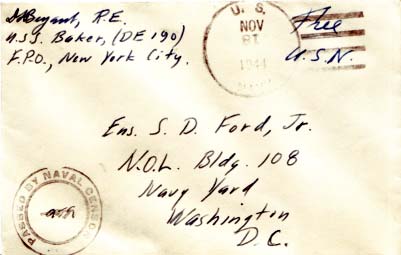 Bryant, R.E.
U.S.S. Baker, (DE 190)
F.P.O., New York City.
U. S.
NOV
1944
NAVY
Free
U.S.N.
Ens. S. D. Ford, Jr.
N.O.L. Bldg. 108
Navy Yard
Washington
D.C.
PASSED BY NAVAL CENSOR